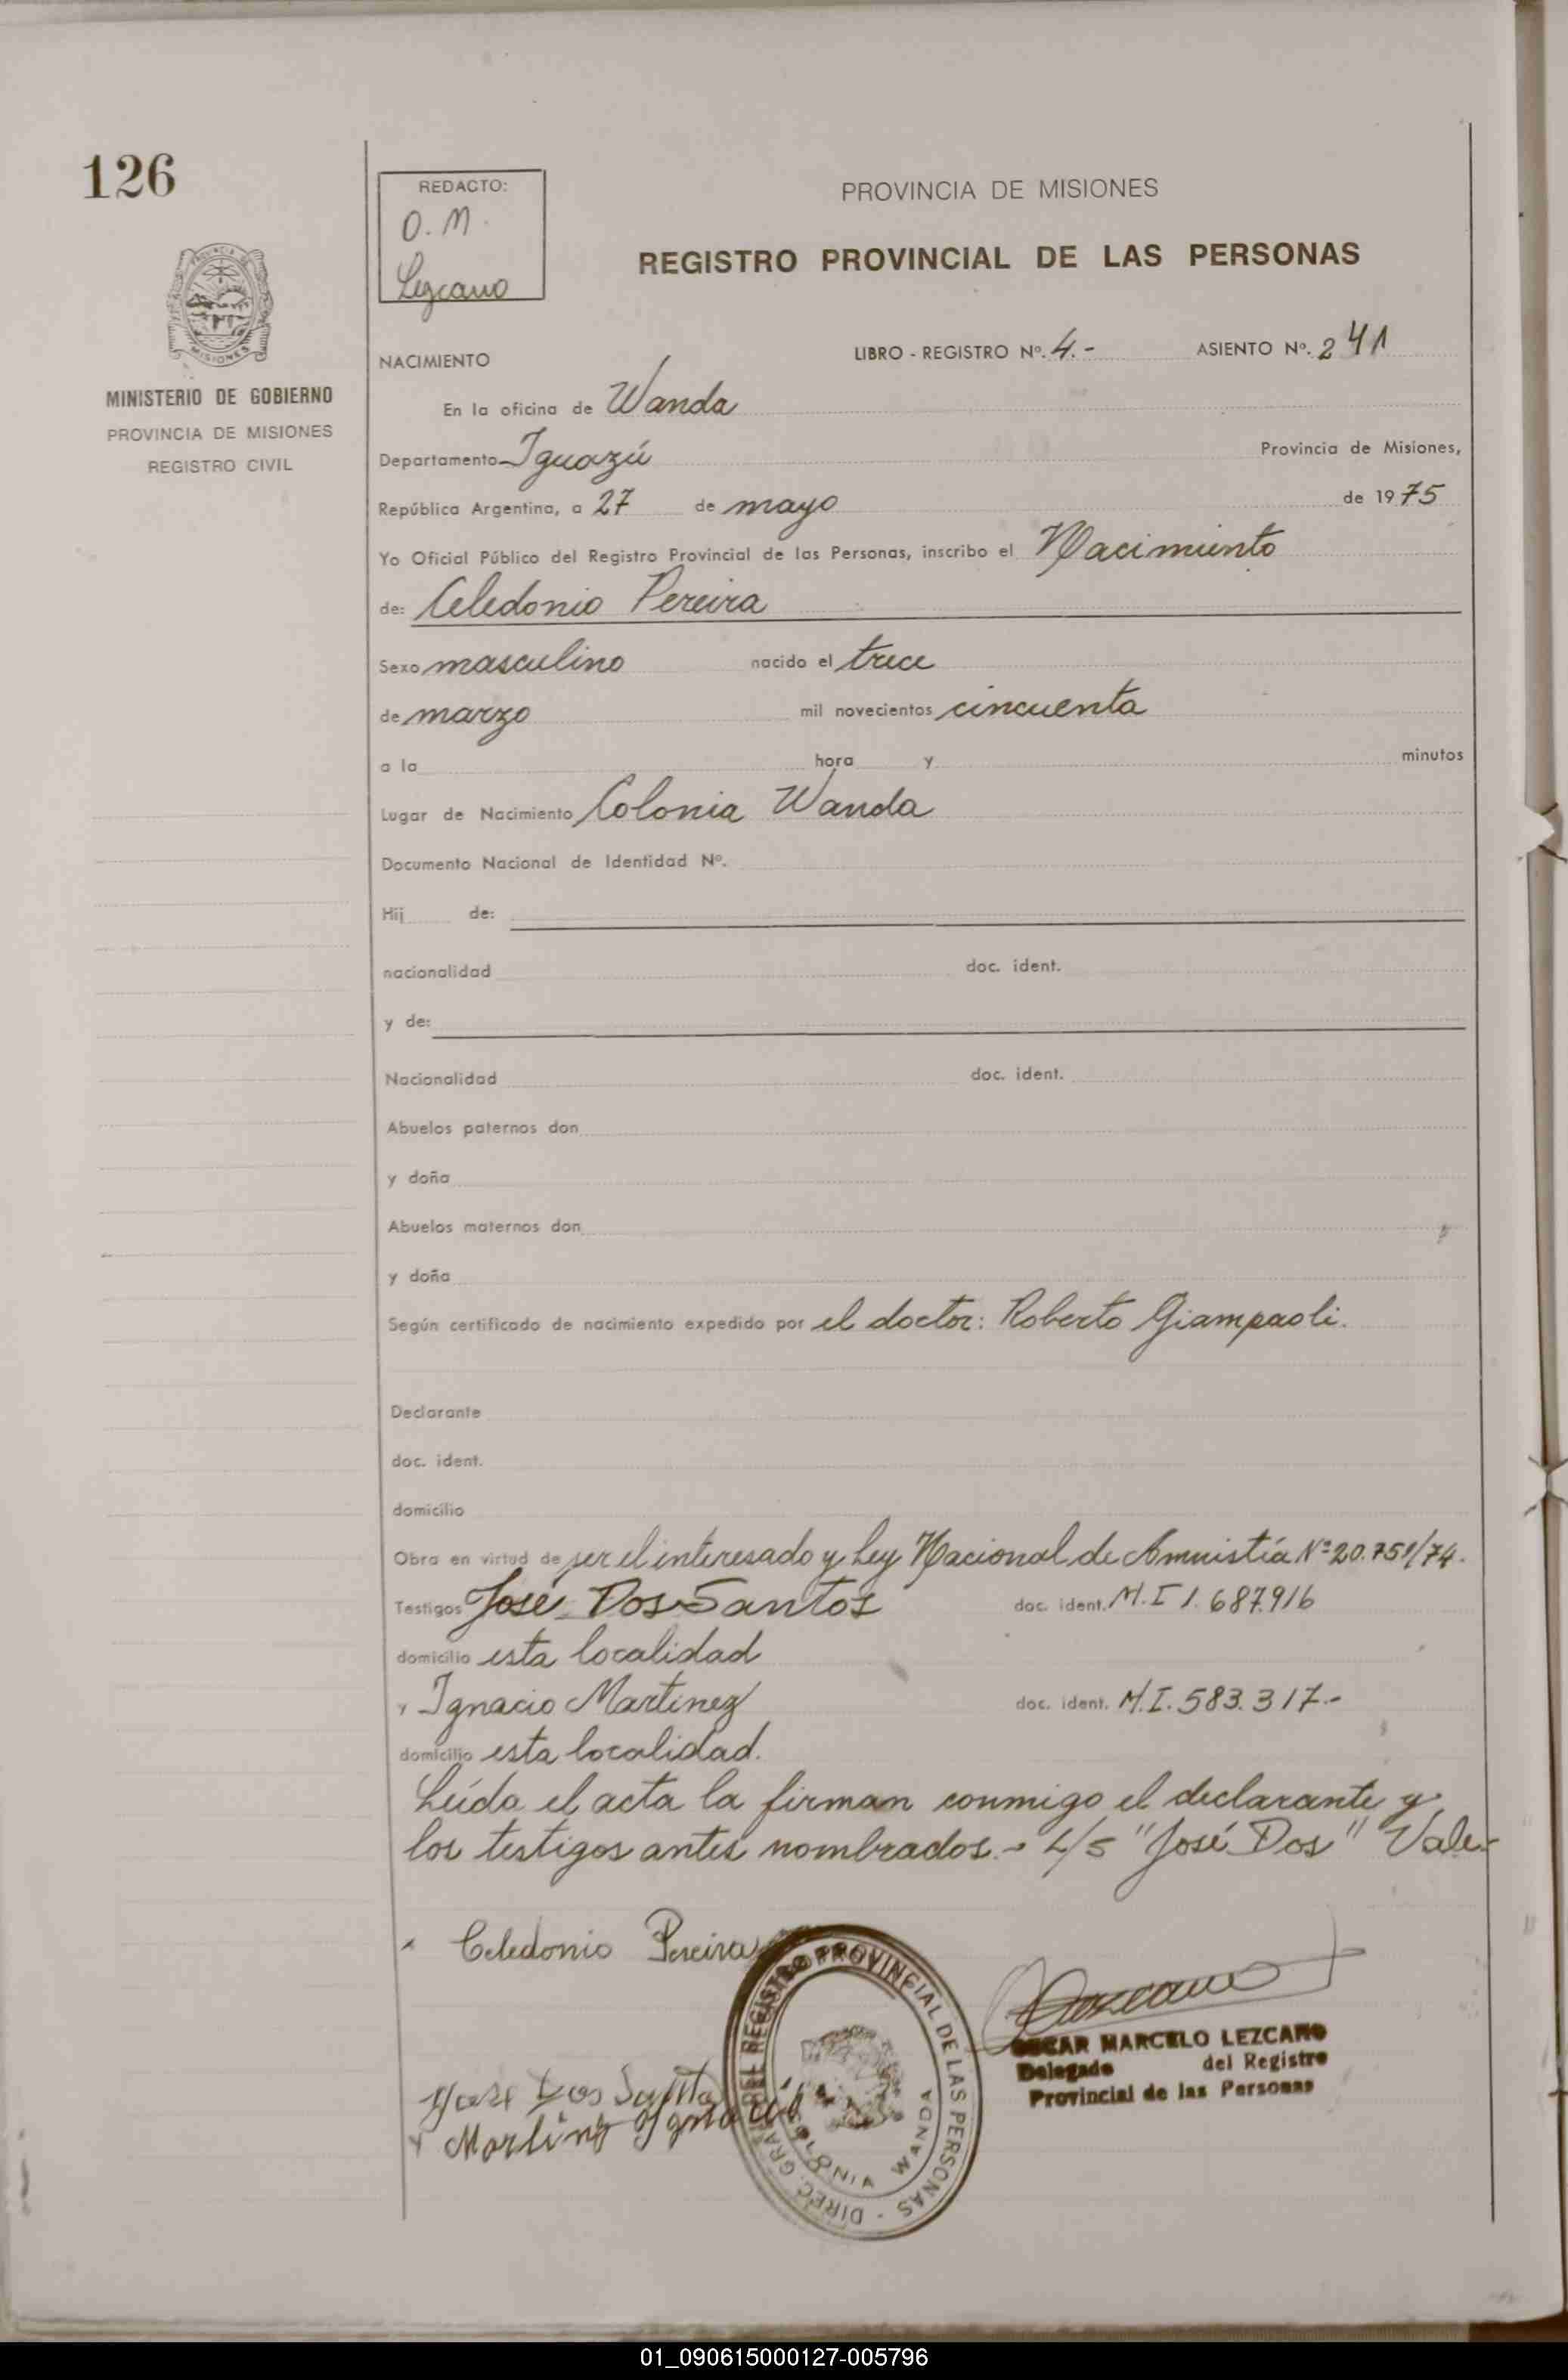 126
REDACTO:
O. M.
Lezcano
PROVINCIA DE MISIONES
REGISTRO PROVINCIAL DE LAS PERSONAS
MISIONES
MINISTERIO DE GOBIERNO
PROVINCIA DE MISIONES
REGISTRO CIVIL
NACIMIENTO
LIBRO - REGISTRO Nº. 4.- ASIENTO Nº. 241
En la oficina de Wanda
Departamento Iguazú Provincia de Misiones,
República Argentina, a 27 de mayo de 1975
Yo Oficial Público del Registro Provincial de las Personas, inscribo el Nacimiento
de: Celedonio Pereira
Sexo masculino nacido el trece
de marzo mil novecientos cincuenta
a la hora y minutos
Lugar de Nacimiento Colonia Wanda
Documento Nacional de Identidad Nº.
Hij de:
nacionalidad doc. ident.
y de:
Nacionalidad doc. ident.
Abuelos paternos don
y doña
Abuelos maternos don
y doña
Según certificado de nacimiento expedido por el doctor: Roberto Giampaoli.
Declarante
doc. ident.
domicilio
Obra en virtud de ser el interesado y Ley Nacional de Amnistía Nº 20.751/74.
Testigos José Dos Santos doc. ident. M.I 1.687.916
domicilio esta localidad
y Ignacio Martinez doc. ident. M.I. 583.317.-
domicilio esta localidad.
Leída el acta la firman conmigo el declarante y
los testigos antes nombrados.- L/5 "José Dos" Vale.-
Celedonio Pereira
DIREC. GRAL. DEL REGISTRO PROVINCIAL DE LAS PERSONAS -
COLONIA WANDA
OSCAR MARCELO LEZCANO
Delegado del Registro
Provincial de las Personas
José Dos Santo
Martinz Ignacio
01_090615000127-005796